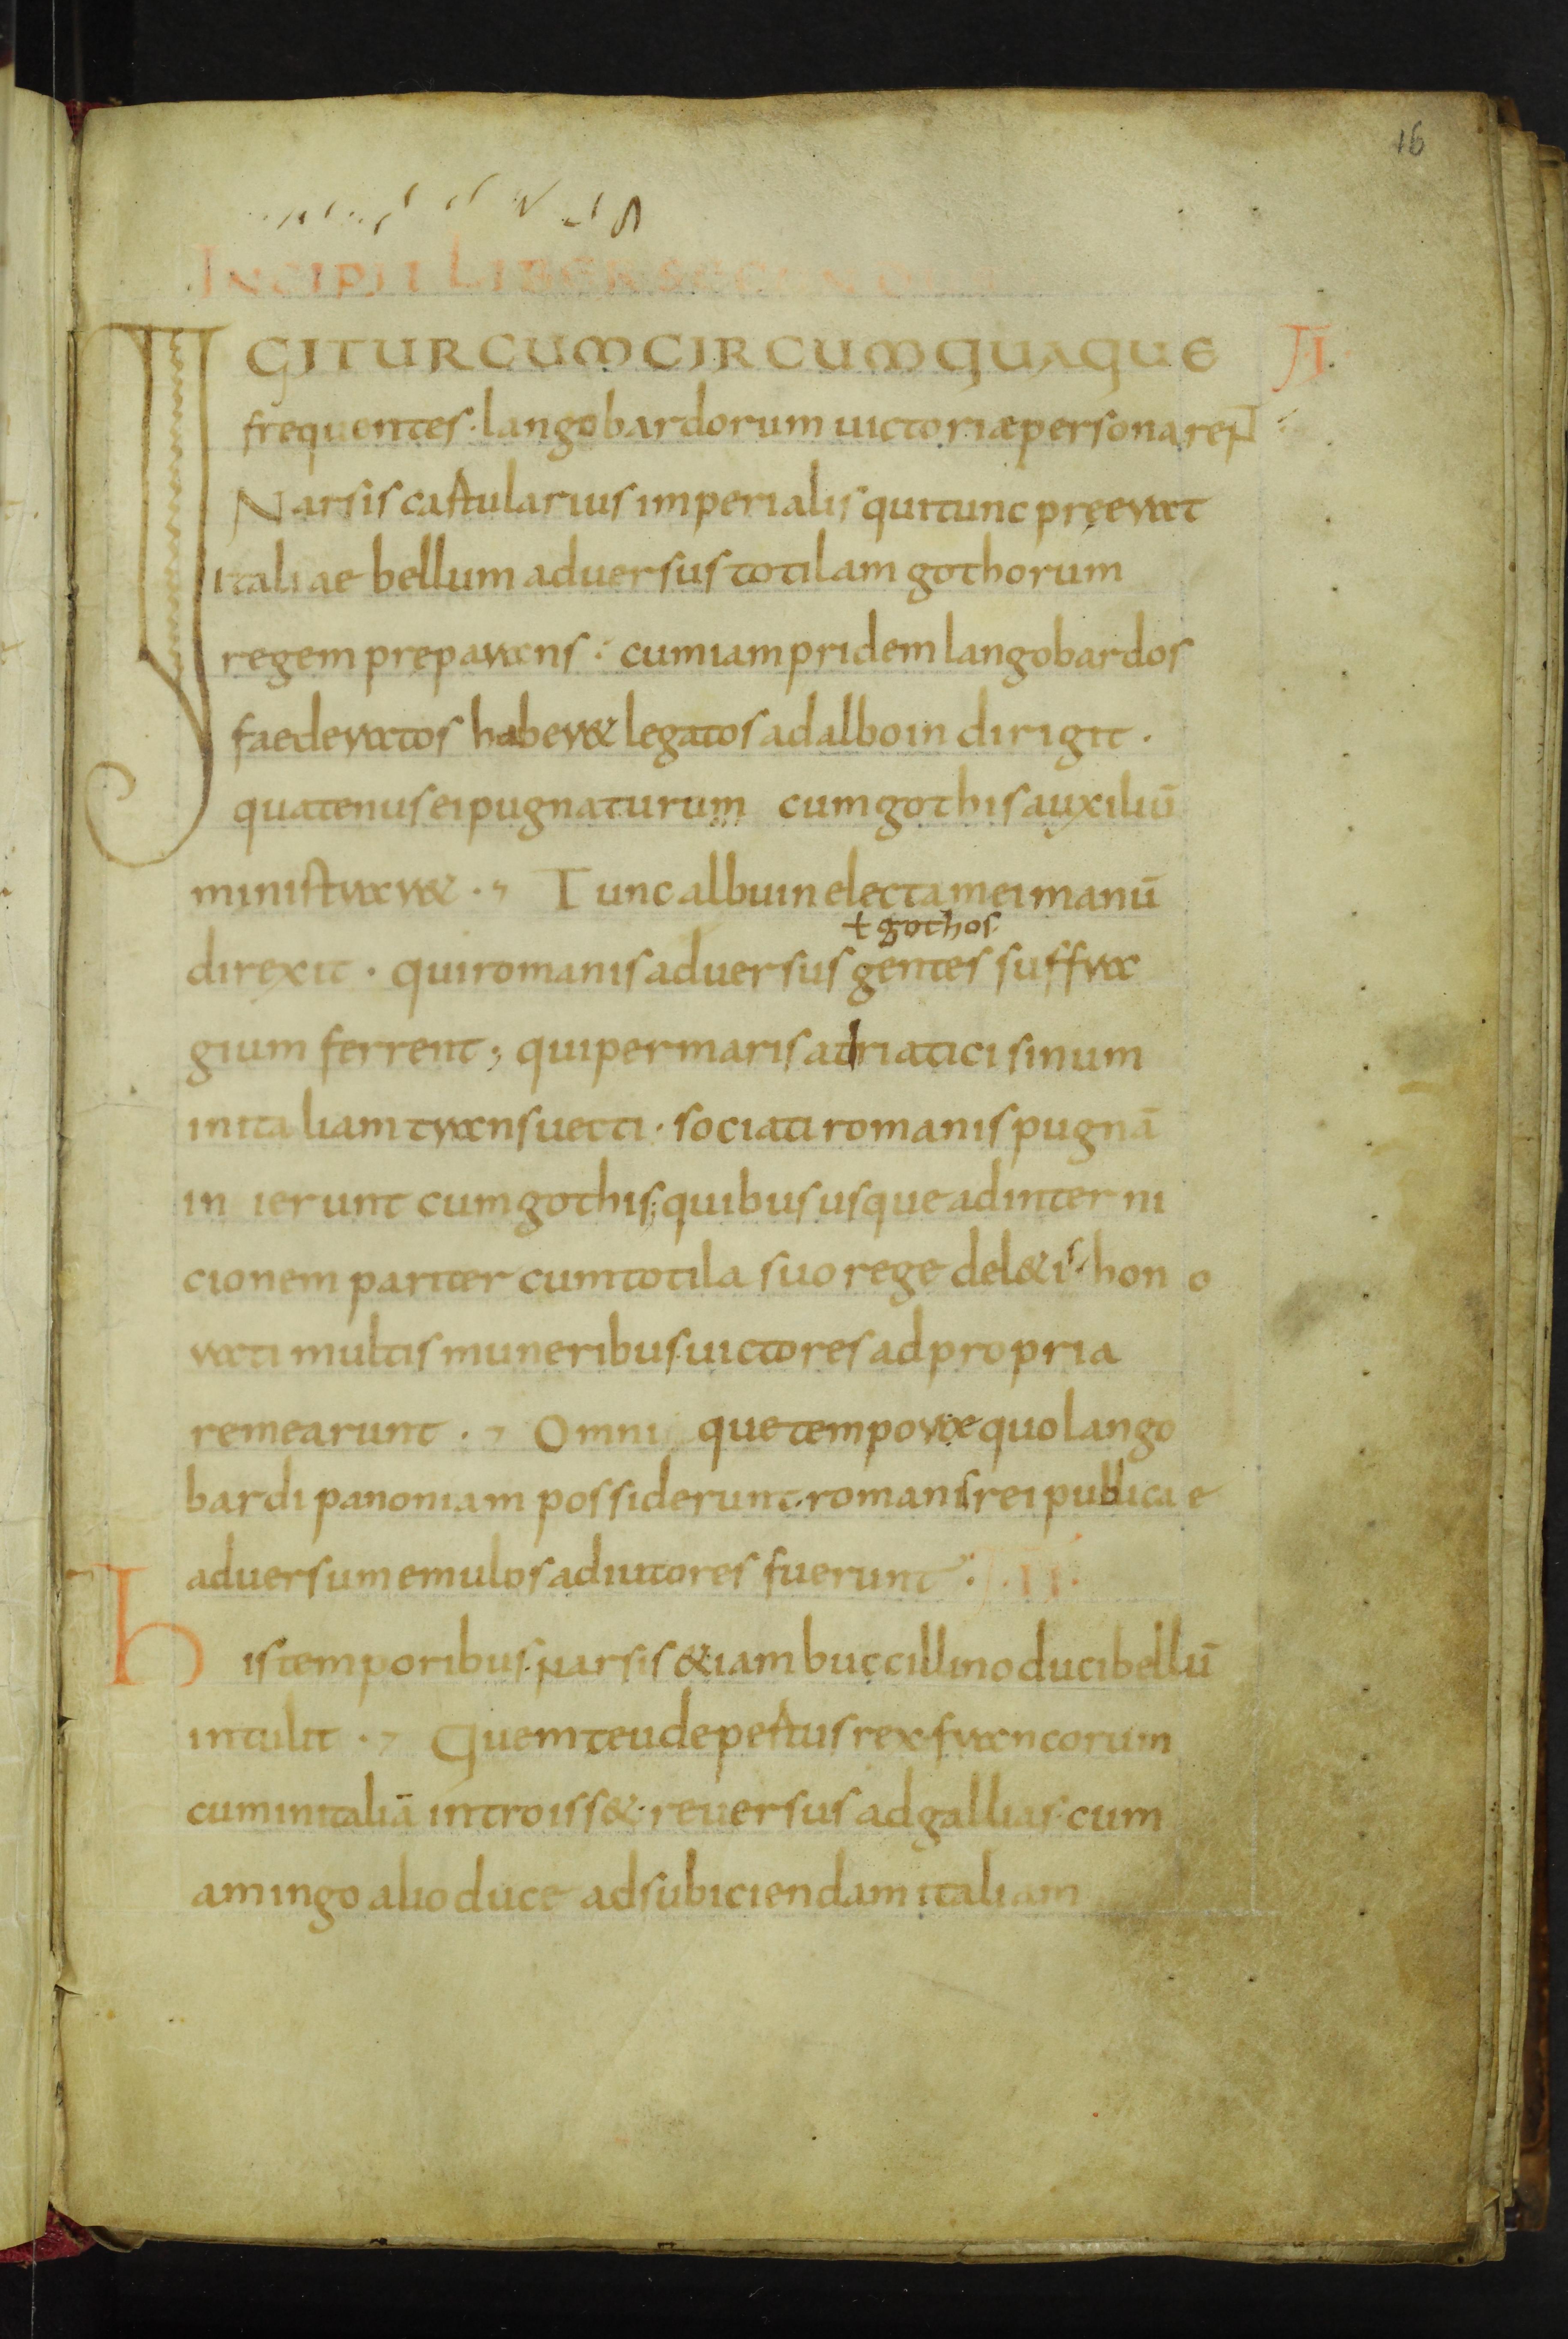 16
INCIPIT LIBER SECUN
IGITUR CUM CIRCUMQUAQUE I.
frequentes· langobardorum uictoriae personarenT
Narsis cartularius imperialis qui tunc pręerat
italiae bellum aduersus totilam gothorum
regem preparans· cum iampridem langobardos
faederatos haber& legatos ad alboin dirigit·
quatenus ei pugnaturum cum gothis auxiliū
ministrar&· Tunc albuin electam ei manū
+ gothos·
direxit· qui romanis aduersus gentes suffra
gium ferrent; qui per maris adriatici sinum
in italiam transuecti· sociati romanis pugnā
in ierunt cum gothis; quibus usque ad interni
cionem pariter cum totila suo rege del&is· hono
rati multis muneribus· uictores ad propria
remearunt· Omni que tempore quo lango
bardi panoniam possiderunt· romanis rei publicae
aduersum emulos adiutores fuerunt· II·
his temporibus· narsis &iam buccillino duci bellū
intulit· Quem teudepertus rex francorum
cum in italiā introiss&· reuersus ad gallias· cum
amingo alio duce ad subiciendam italiam